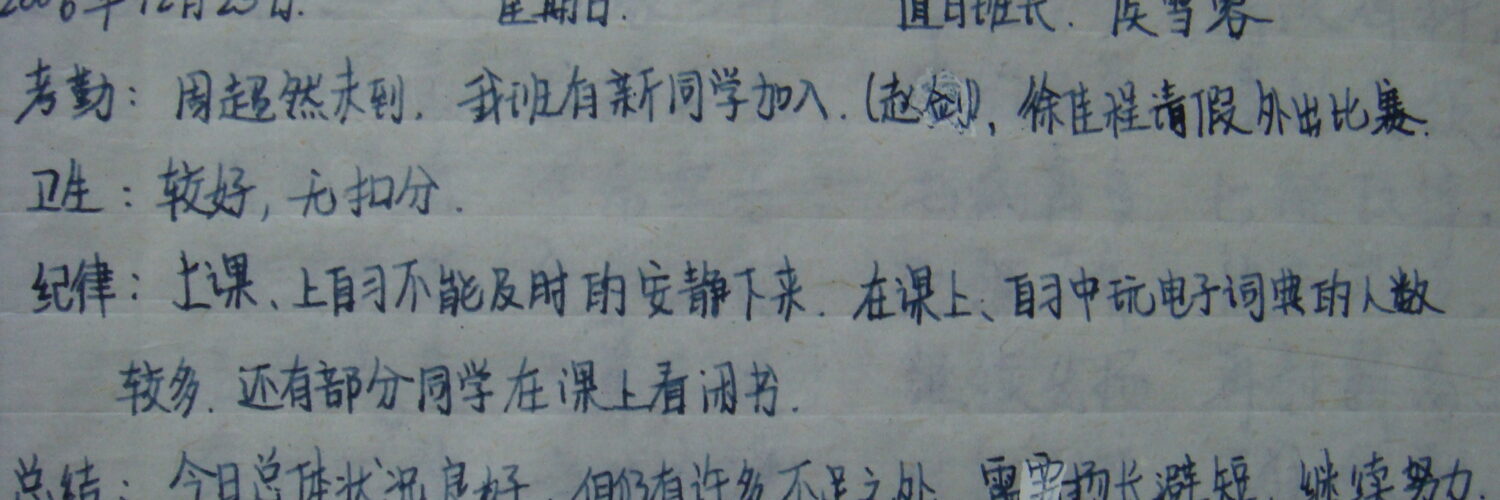 2006年12月23日. 星期日. 值日班长. 侯雪蓉
考勤: 周超然未到. 我班有新同学加入.(赵剑), 徐佳程请假外出比赛.
卫生: 较好, 无扣分.
纪律: 上课、上自习不能及时的安静下来. 在课上、自习中玩电子词典的人数
较多. 还有部分同学在课上看闲书.
总结: 今日总体状况良好, 但仍有许多不足之处, 需要扬长避短, 继续努力.